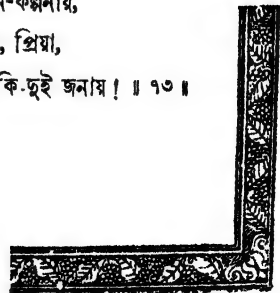 -কল্পনায়,
, প্রিয়া,
কি-দুই জনায় ! ॥ ৭৩ ॥